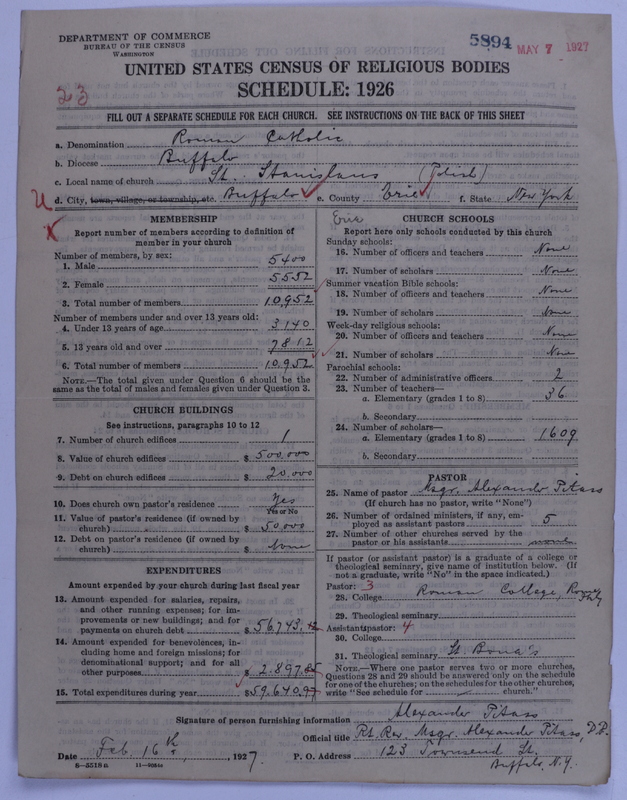 DEPARTMENT OF COMMERCE
BUREAU OF THE CENSUS
WASHINGTON
5894
MAY 7 1927
UNITED STATES CENSUS OF RELIGIOUS BODIES
SCHEDULE: 1926
23
FILL OUT A SEPARATE SCHEDULE FOR EACH CHURCH. SEE INSTRUCTIONS ON THE BACK OF THIS SHEET
a. Denomination Roman Catholic
b. Diocese Buffalo
c. Local name of church St. Stanislaus (Polish)
d. City, town, village, or township, etc. Buffalo e. County Erie f. State New York
Erie
MEMBERSHIP
Report number of members according to definition of
member in your church
Number of members, by sex:
1. Male 5400
2. Female 5552
3. Total number of members 10,952
Number of members under and over 13 years old:
4. Under 13 years of age 3140
5. 13 years old and over 7812
6. Total number of members 10,952
NOTE.—The total given under Question 6 should be
same as the total of males and females given under Question 3.
CHURCH BUILDINGS
See instructions, paragraphs 10 to 12
7. Number of church edifices 1
8. Value of church edifices $ 500,000
9. Debt on church edifices $ 20,000
10. Does church own pastor's residence Yes
Yes or No
11. Value of pastor's residence (if owned by
church) $ 50,000
12. Debt on pastor's residence (if owned by
church) $ None
EXPENDITURES
Amount expended by your church during last fiscal year
13. Amount expended for salaries, repairs,
and other running expenses; for im-
provements or new buildings; and for
payments on church debt $ 56,743.12
14. Amount expended for benevolences, in-
cluding home and foreign missions; for
denominational support; and for all
other purposes $ 2,897.85
15. Total expenditures during year $ 59,640.97
CHURCH SCHOOLS
Report here only schools conducted by this church
Sunday schools:
16. Number of officers and teachers None
17. Number of scholars None
Summer vacation Bible schools:
18. Number of officers and teachers None
19. Number of scholars None
Week-day religious schools:
20. Number of officers and teachers None
21. Number of scholars None
Parochial schools:
22. Number of administrative officers 2
23. Number of teachers—
a. Elementary (grades 1 to 8) 36
b. Secondary
24. Number of scholars—
a. Elementary (grades 1 to 8) 1609
b. Secondary
PASTOR
25. Name of pastor Msgr. Alexander Pitass
(If church has no pastor, write "None")
26. Number of ordained ministers, if any, em-
ployed as assistant pastors 5
27. Number of other churches served by the
pastor or his assistants none
If pastor (or assistant pastor) is a graduate of a college or
theological seminary, give name of institution below. (If
not a graduate, write "No" in the space indicated.)
Pastor: 3
28. College Roman College, Rome
Italy
29. Theological seminary
Assistant pastor: 4
30. College
31. Theological seminary St. Bona's
NOTE.—Where one pastor serves two or more churches,
Questions 28 and 29 should be answered only on the schedule
for one of the churches; on the schedules for the other churches,
write "See schedule for church."
Signature of person furnishing information Alexander Pitass
Official title Rt. Rev. Msgr. Alexander Pitass, D.D.
Date Feb. 16th, 1927. P. O. Address 123 Townsend St.
Buffalo, N.Y.
8—5518a 11—9034